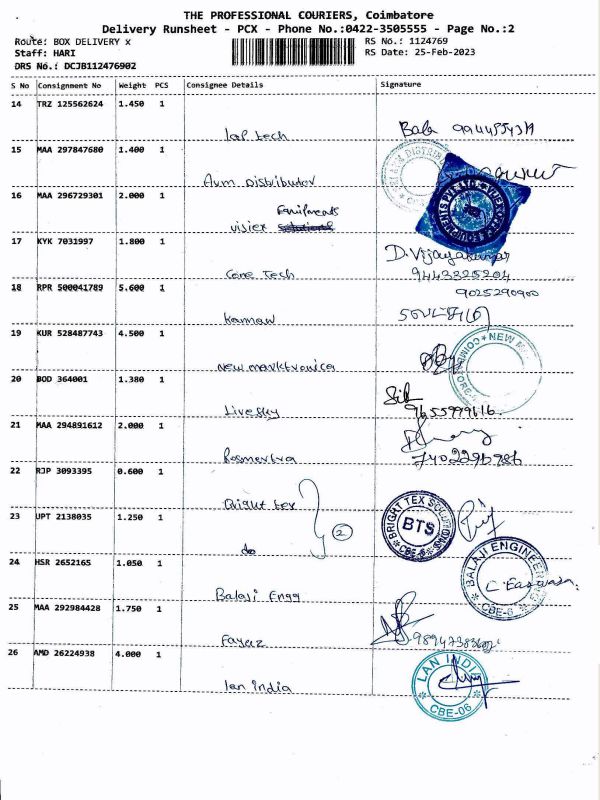 THE PROFESSIONAL COURIERS, Coimbatore
Delivery Runsheet - PCX - Phone No.:0422-3505555 - Page No.:2
Route: BOX DELIVERY x
RS No.: 1124769
Staff: HARI
RS Date: 25-Feb-2023
DRS No.: DCJB112476902
S No Consignment No Weight PCS Consignee Details Signature
14 TRZ 125562624 1.450 1
Iof tech Bala
15 MAA 297847680 1.400 1
Avm Distributor
16 MAA 296729301 2.000 1
Equipments
visiex
17 KYK 7031997 1.800 1
Core Tech D.Vijayakumar
9443325204
18 RPR 500041789 5.600 1
9025290900
Kannan
19 KUR 528487743 4.500 1
NEW M
COIM
new marktronics
20 BOD 364001 1.380 1
Livesky
21 MAA 294891612 2.000 1
22 RJP 3093395 0.600 1
Bright tex
BRIGHT TEX SOLUTIONS
BTS
CBE-6
23 UPT 2138035 1.250 1
do 2
24 HSR 2652165 1.050 1
BALAJI ENGINEER
CBE-6
Balaji Engg
25 MAA 292984428 1.750 1
Fayaz
26 AMD 26224938 4.000 1
LAN INDIA
CBE-06
lan india